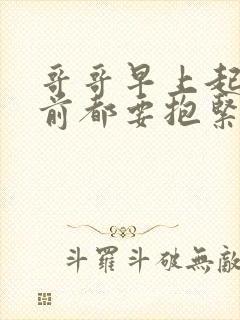 哥哥早上起
前都要抱緊
斗羅斗破無敵